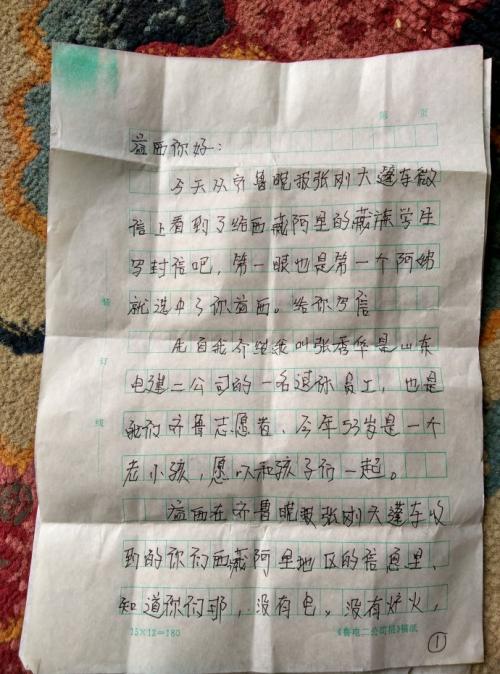 第 页
益西你好:
今天从齐鲁晚报张刚大篷车微
信上看到了给西藏阿里的藏族学生
写封信吧,第一眼也是第一个阿妈
就选中了你益西。给你写信
先自我介绍我叫张秀华是山东
电建二公司的一名退休员工,也是
齐鲁志愿者、今年53岁是一个
老小孩,愿以和孩子们一起。
益西在齐鲁晚报张刚大篷车收
到的你们西藏阿里地区的信息里,
知道你们那,没有电,没有炉火,
装
订
线
15×12=180
《鲁电二公司报》稿纸
①